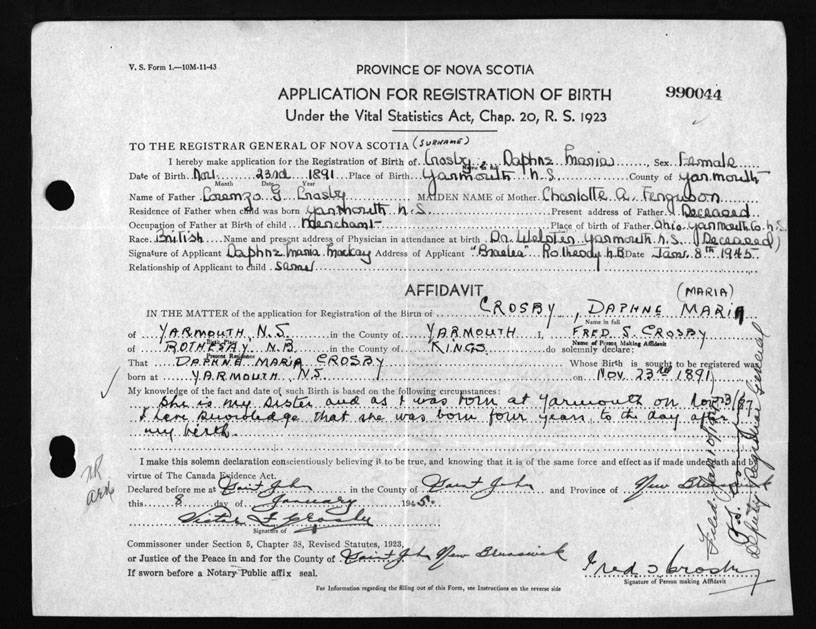 V. S. Form 1.—10M-11-43
PROVINCE OF NOVA SCOTIA
APPLICATION FOR REGISTRATION OF BIRTH
990044
Under the Vital Statistics Act, Chap. 20, R. S. 1923
TO THE REGISTRAR GENERAL OF NOVA SCOTIA (SURNAME)
I hereby make application for the Registration of Birth of Crosby, Daphne Maria, Sex Female
Date of Birth Nov. 23rd 1891 Place of Birth Yarmouth N.S County of Yarmouth
Month Date Year
Name of Father Lorenzo G Crosby MAIDEN NAME of Mother Charlotte A. Ferguson
Residence of Father when child was born Yarmouth N.S Present address of Father Deceased
Occupation of Father at Birth of child Merchant Place of birth of Father Ohio Yarmouth Co. N.S.
Race British Name and present address of Physician in attendance at birth Dr. Webster Yarmouth N.S. (Deceased)
Signature of Applicant Daphne Maria Mackay Address of Applicant "Braelea" Rothesay N.B Date Jan. 8th 1945
Relationship of Applicant to child same
AFFIDAVIT (MARIA)
IN THE MATTER of the application for Registration of the Birth of CROSBY, DAPHNE MARIA
Name in full
of YARMOUTH, N.S. in the County of YARMOUTH I, FRED S. CROSBY
Birth Place Name of Person Making Affidavit
of ROTHESAY, N.B. in the County of KINGS do solemnly declare:
Present Residence
That DAPHNE MARIA CROSBY Whose Birth is sought to be registered was
born at YARMOUTH, N.S. on NOV. 23rd 1891
My knowledge of the fact and date of such Birth is based on the following circumstances:
She is my sister and as I was born at Yarmouth on Nov 23/87
I have knowledge that she was born four years to the day after
my birth.
I make this solemn declaration conscientiously believing it to be true, and knowing that it is of the same force and effect as if made under oath and by
virtue of The Canada Evidence Act.
Declared before me at Saint John in the County of Saint John and Province of New Brunswick
this 8 day of January 1945.
Victor F Crosby
Signature of
Commissioner under Section 5, Chapter 38, Revised Statutes, 1923,
or Justice of the Peace in and for the County of Saint John New Brunswick
If sworn before a Notary Public affix seal.
Fred S Crosby
Signature of Person making Affidavit
For Information regarding the filling out of this Form, see Instructions on the reverse side
Deputy Registrar General